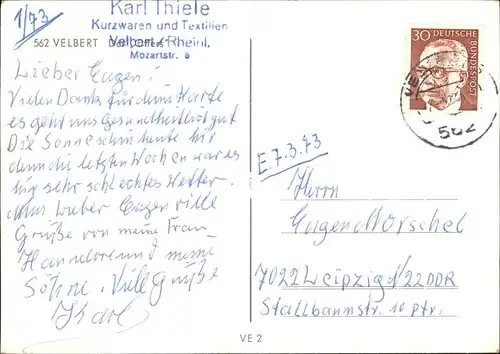 1/73
Karl Thiele
Kurzwaren und Textilien
562 VELBERT
Velbert/Rheinl.
Mozartstr. 6
Lieber Eugen!
Vielen Dank für deine Karte
es geht uns Gesundheitlich gut
Die Sonne schin heute hir
denn die letzten Wochen war es
hir sehr schlechtes Wetter.
Nun lieber Eugen ville
Grüße von meine Frau
Hannelore und meine
Söhne. Viell Grüße
Karl
30
DEUTSCHE
BUNDESPOST
562
E.7.3.73
Herrn
Eugen Morschel
7022 Leipzig 1/22 DDR
Stallbaumstr. 10 ptr.
VE 2